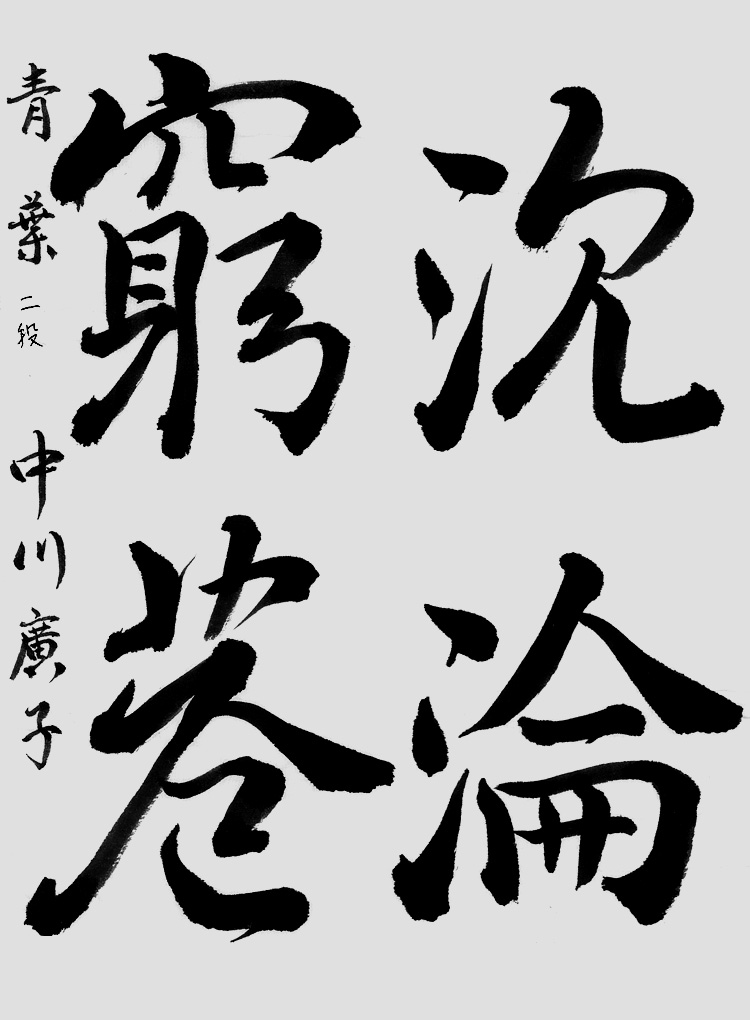 沈淪
窮巷
青葉 二段 中川廣子